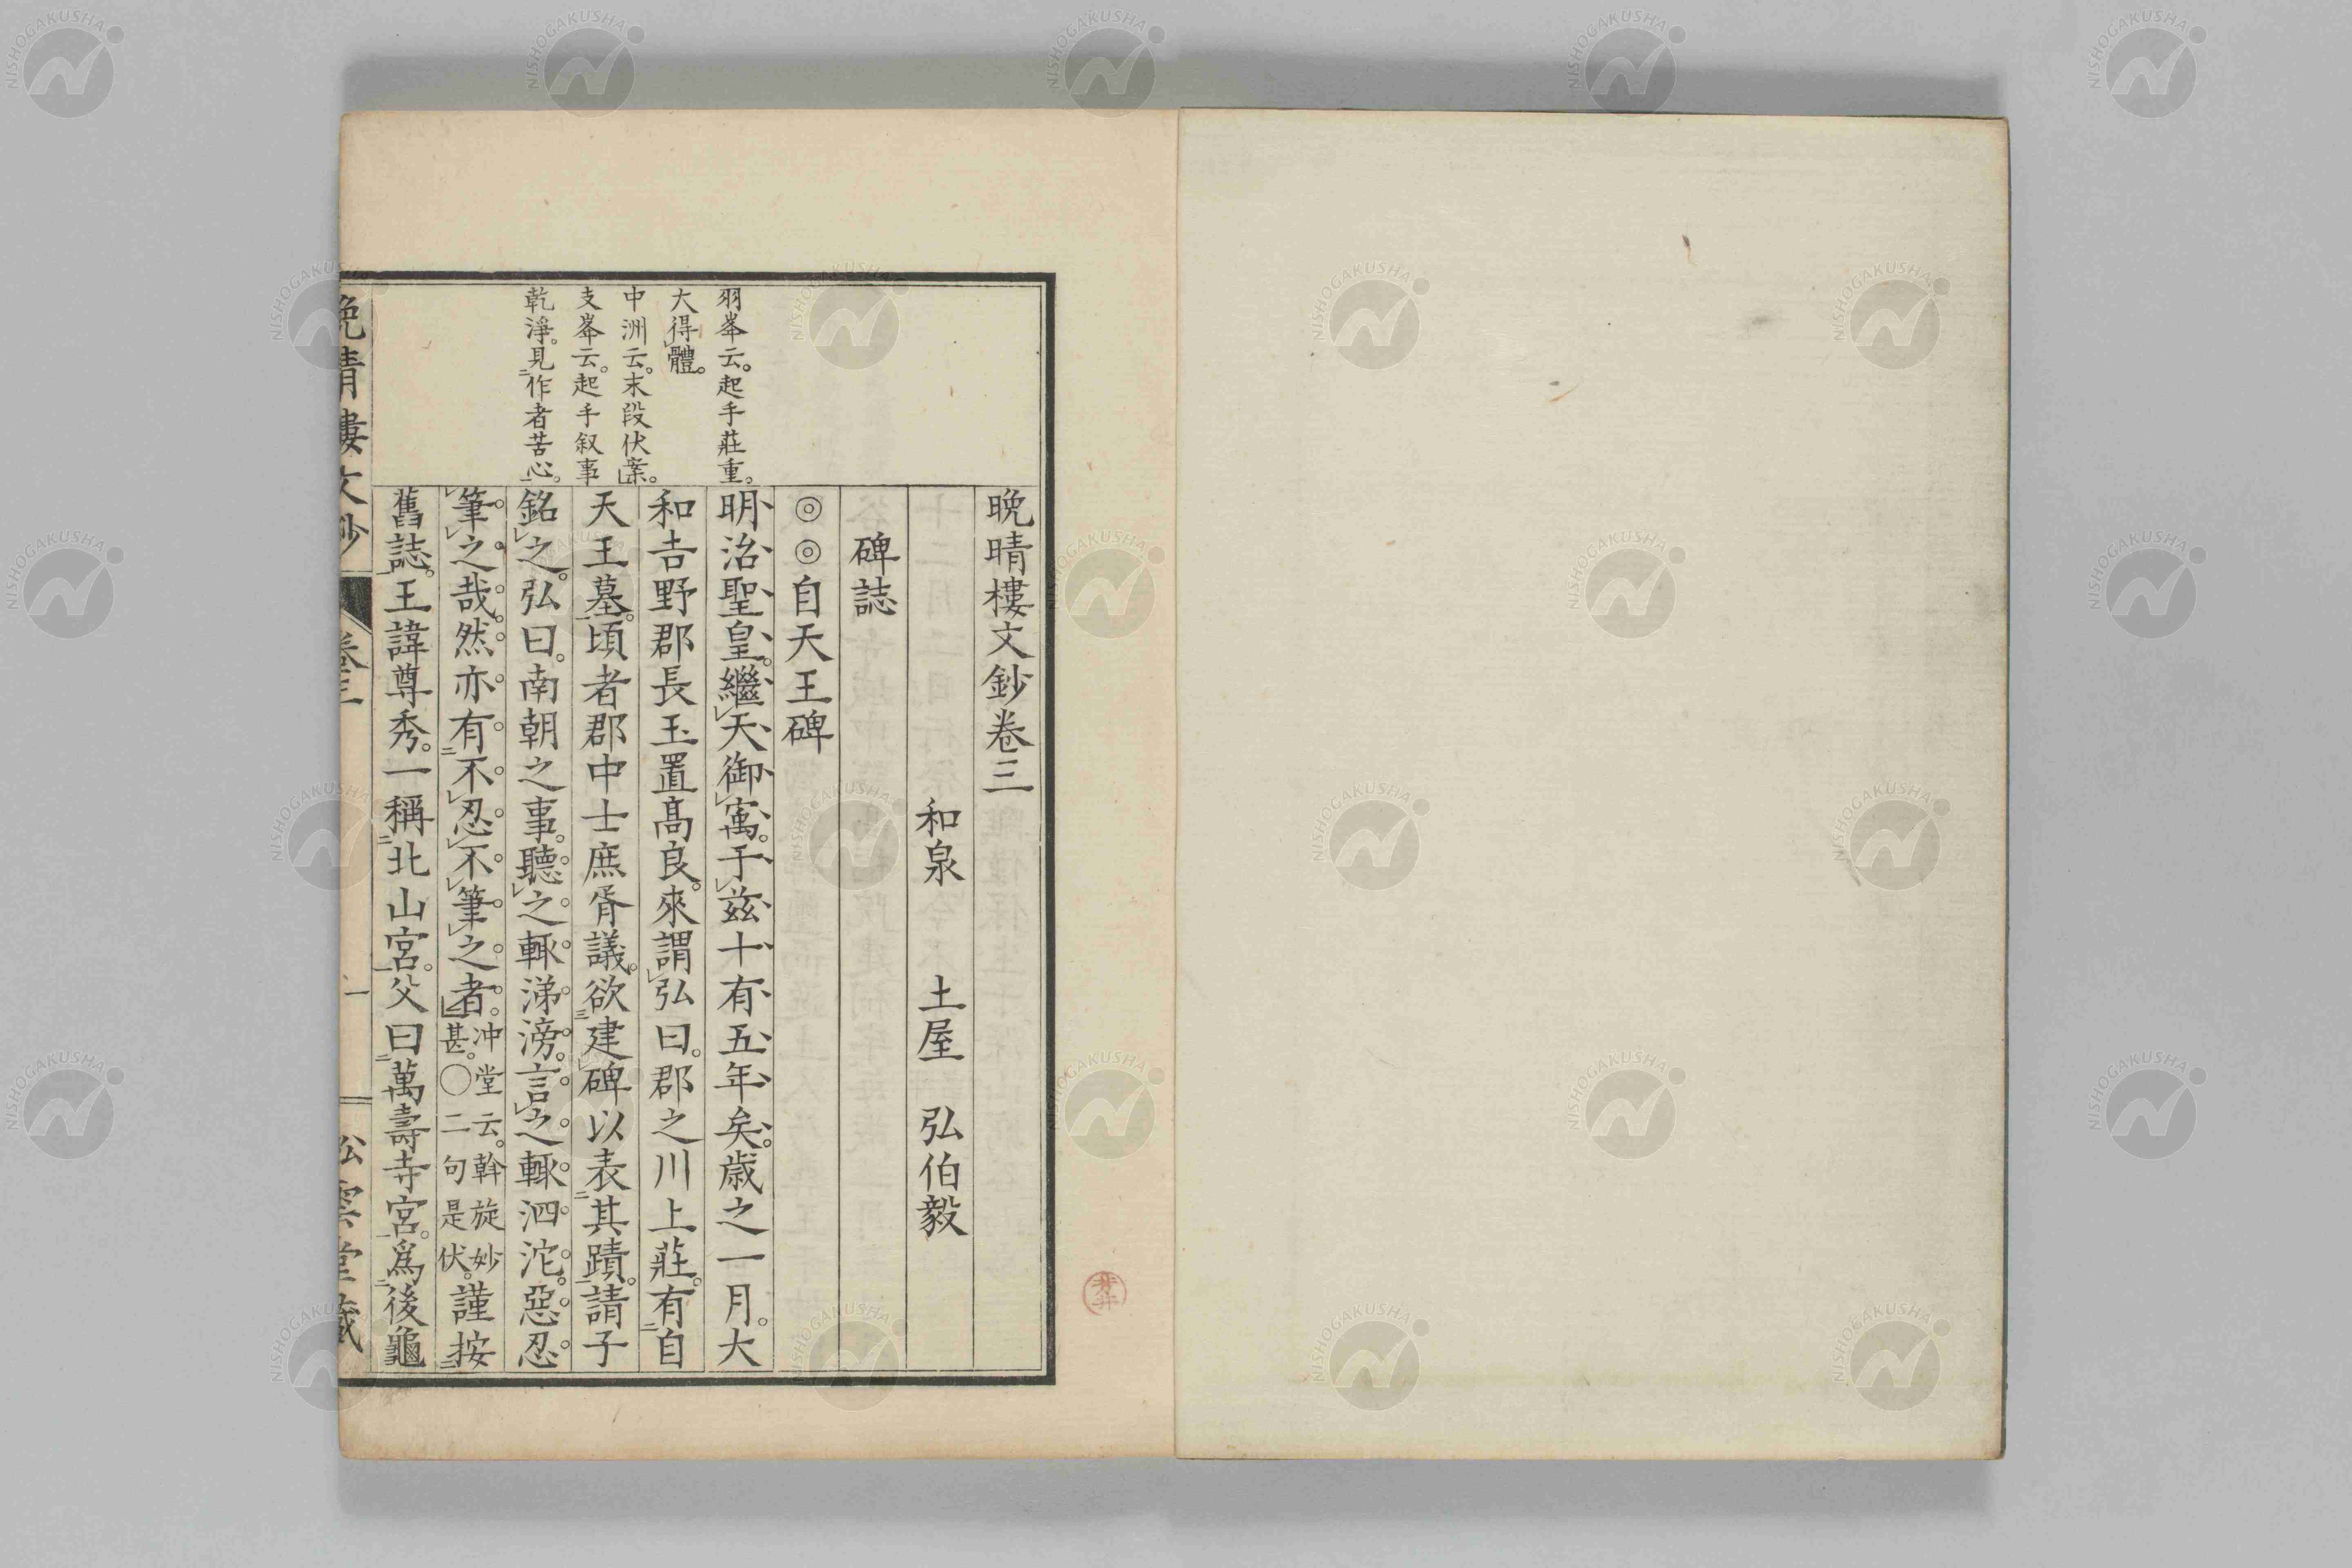 晩晴樓文鈔卷三
和泉 土屋 弘伯毅
碑誌
◎◎自天王碑
明治聖皇。繼天御寓。于兹十有五年矣。歳之一月。大
和吉野郡長玉置髙良。來謂弘曰。郡之川上莊。有自
天王墓。頃者郡中士庶胥議。欲建碑以表其蹟。請子
銘之。弘曰。南朝之事。聽之輒涕滂。言之輒泗沱。惡忍
筆之哉。然亦有不忍不筆之者。冲堂云。斡旋妙甚。〇二句是伏。謹按
舊誌。王諱尊秀。一稱北山宮。父曰萬壽寺宮。爲後龜
羽峯云。起手莊重。
大得體。
中洲云。末段伏案。
支峯云。起手叙事
乾淨。見作者苦心。
晩晴樓文鈔 卷三 一
NISHOGAKUSHA